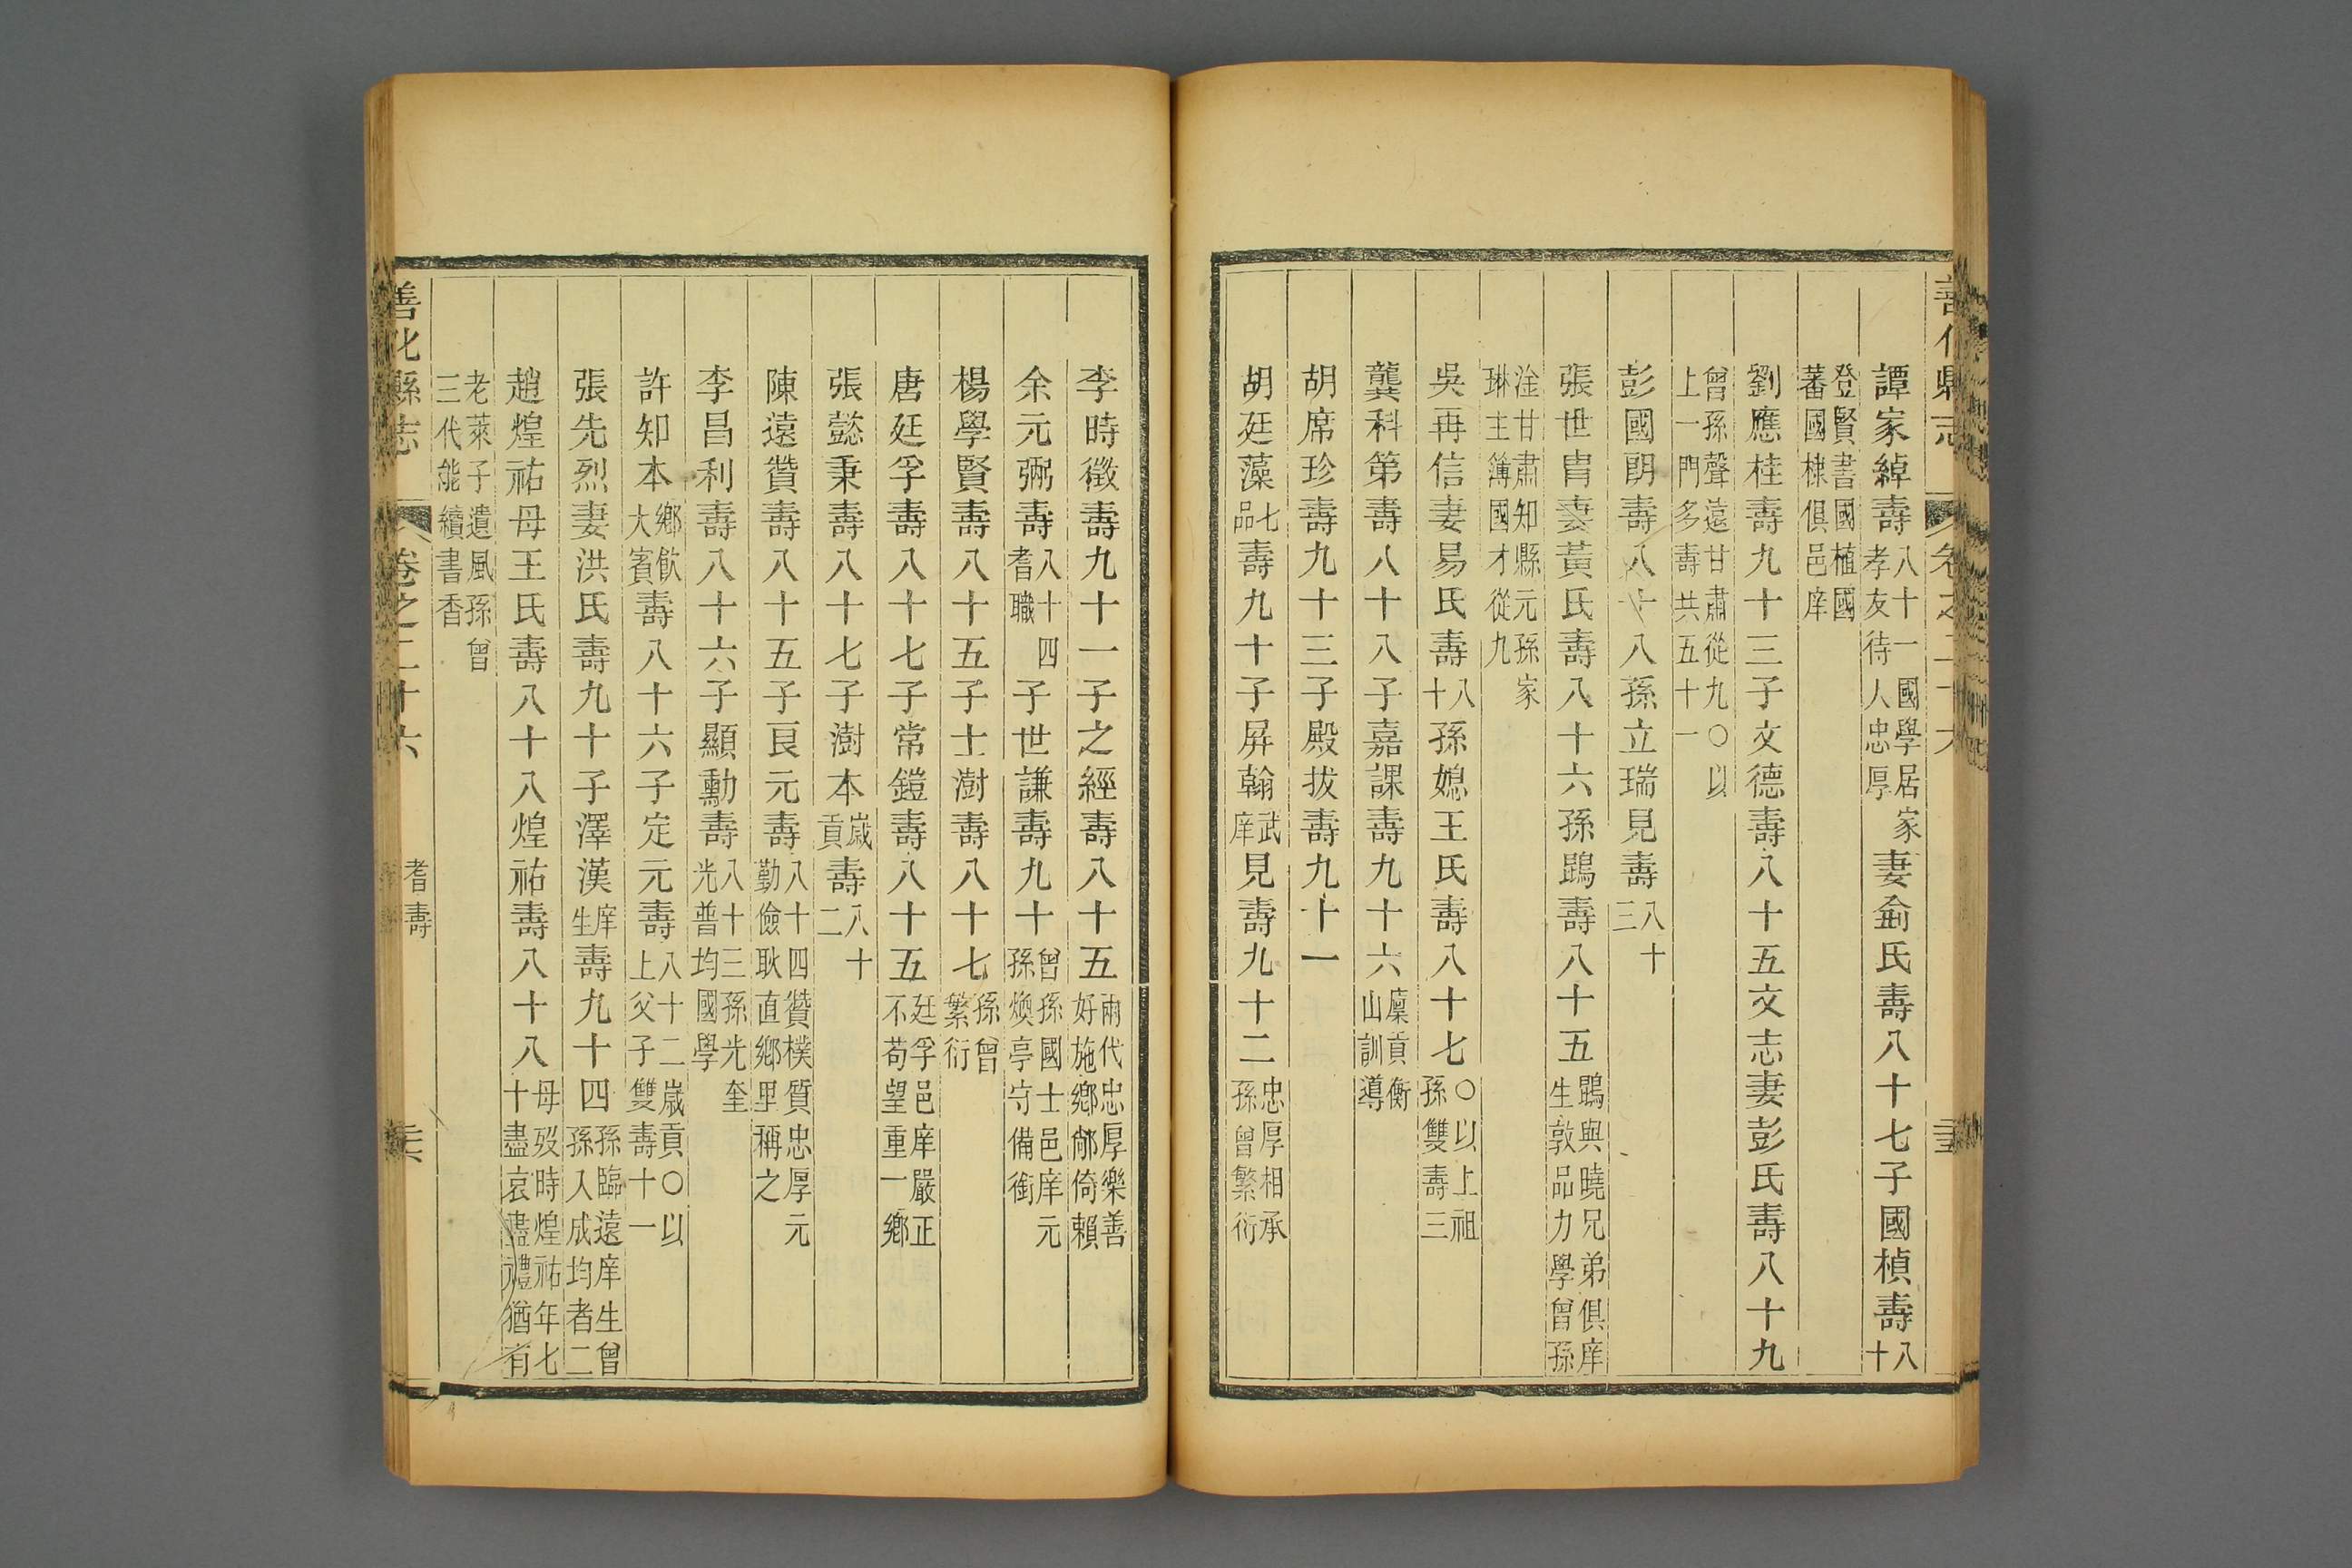 善化縣志
卷之二十六
譚家綽壽八十一國學居家孝友待人忠厚妻俞氏壽八十七子國楨壽八十
登賢書國植國蕃國棣俱邑庠
劉應桂壽九十三子文德壽八十五文志妻彭氏壽八十九
曾孫聲遠甘肅從九〇以上一門多壽共五十一
彭國朗壽八十八孫立瑞見壽八十三
張世胄妻黃氏壽八十六孫鵾壽八十五鵾與曉兄弟俱庠生敦品力學曾孫
淦甘肅知縣元孫家琳主簿國才從九
吳再信妻易氏壽八十孫媳王氏壽八十七〇以上祖孫雙壽三
龔科第壽八十八子嘉課壽九十六廩貢衡山訓導
胡席珍壽九十三子殿拔壽九十一
胡廷藻七品壽九十子屏翰武庠見壽九十二忠厚相承孫曾繁衍
李時徵壽九十一子之經壽八十五兩代忠厚樂善好施鄉鄰倚賴
余元弼壽八十四耆職子世謙壽九十曾孫國士邑庠元孫煥亭守備銜
楊學賢壽八十五子士澍壽八十七孫曾繁衍
唐廷孚壽八十七子常鎧壽八十五廷孚邑庠嚴正不苟望重一鄉
張懿秉壽八十七子澍本歲貢壽八十二
陳遠贊壽八十五子艮元壽八十四贊樸質忠厚元勤儉耿直鄉里稱之
李昌利壽八十六子顯勳壽八十三孫光奎光普均國學
許知本鄉飲大賓壽八十六子定元壽八十二歲貢〇以上父子雙壽十一
張先烈妻洪氏壽九十子澤漢庠生壽九十四孫臨遠庠生曾孫入成均者二
趙煌祐母王氏壽八十八煌祐壽八十八母歿時煌祐年七十盡哀盡禮猶有
老萊子遺風孫曾三代能續書香
善化縣志
卷之二十六
耆壽